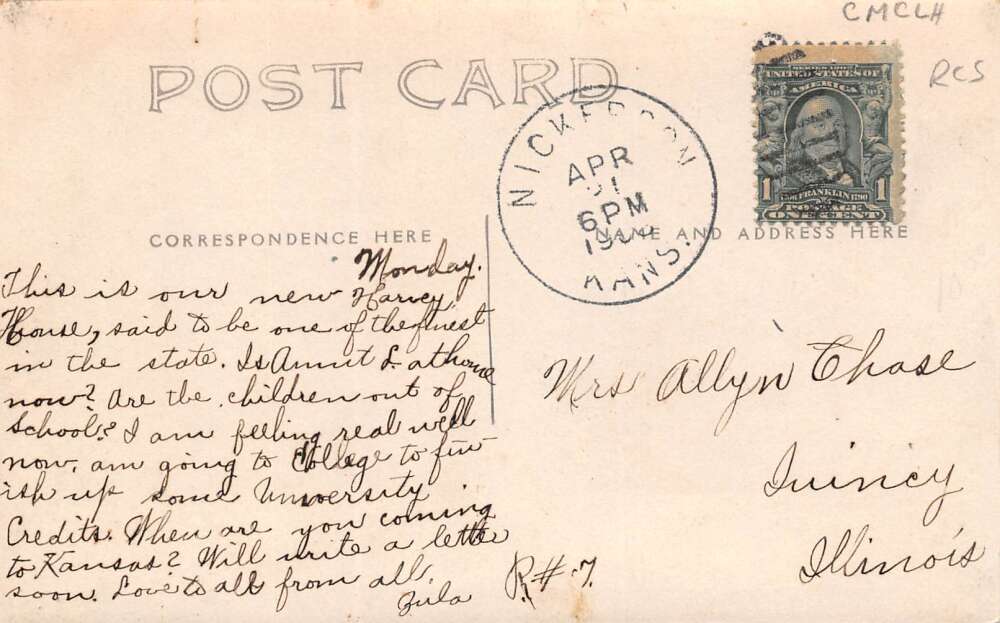 CMCLH
RCS
POST CARD
NICKERSON
APR
6PM
KANS.
SERIES 1902
UNITED STATES OF
AMERICA
1 FRANKLIN 1790 1
POSTAGE
ONE CENT
CORRESPONDENCE HERE
NAME AND ADDRESS HERE
Monday.
This is our new Harvey
House, said to be one of the finest
in the state. Is Aunt L. at home
now? Are the children out of
School? I am feeling real well
now, am going to College to fin
ish up some University
Credits. When are you coming
to Kansas? Will write a letter
soon. Love to all from all,
Zula
Mrs Allyn Chase
Quincy
Illinois
R.#7.